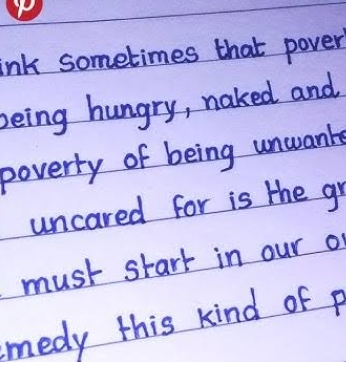 ink sometimes that pover
being hungry, naked and
poverty of being unwante
uncared for is the gr
must start in our o
emedy this kind of p